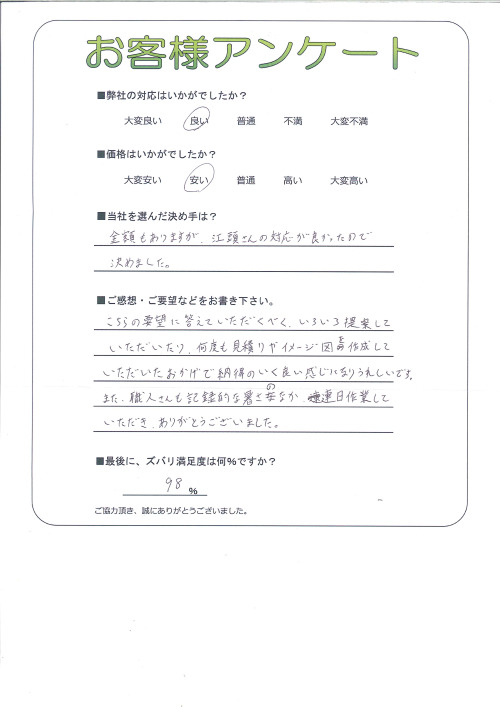 お客様アンケート
■弊社の対応はいかがでしたか？
大変良い 良い 普通 不満 大変不満
■価格はいかがでしたか？
大変安い 安い 普通 高い 大変高い
■当社を選んだ決め手は？
金額もありますが、江頭さんの対応が良かったので
決めました。
■ご感想・ご要望などをお書き下さい。
こちらの要望に答えていただくべく、いろいろ提案して
いただいたり、何度も見積りやイメージ図を作成して
いただいたおかげで納得のいく良い感じになりうれしいです。
また、職人さんも記録的な暑さのなか、連日作業して
いただき、ありがとうございました。
■最後に、ズバリ満足度は何％ですか？
98 %
ご協力頂き、誠にありがとうございました。